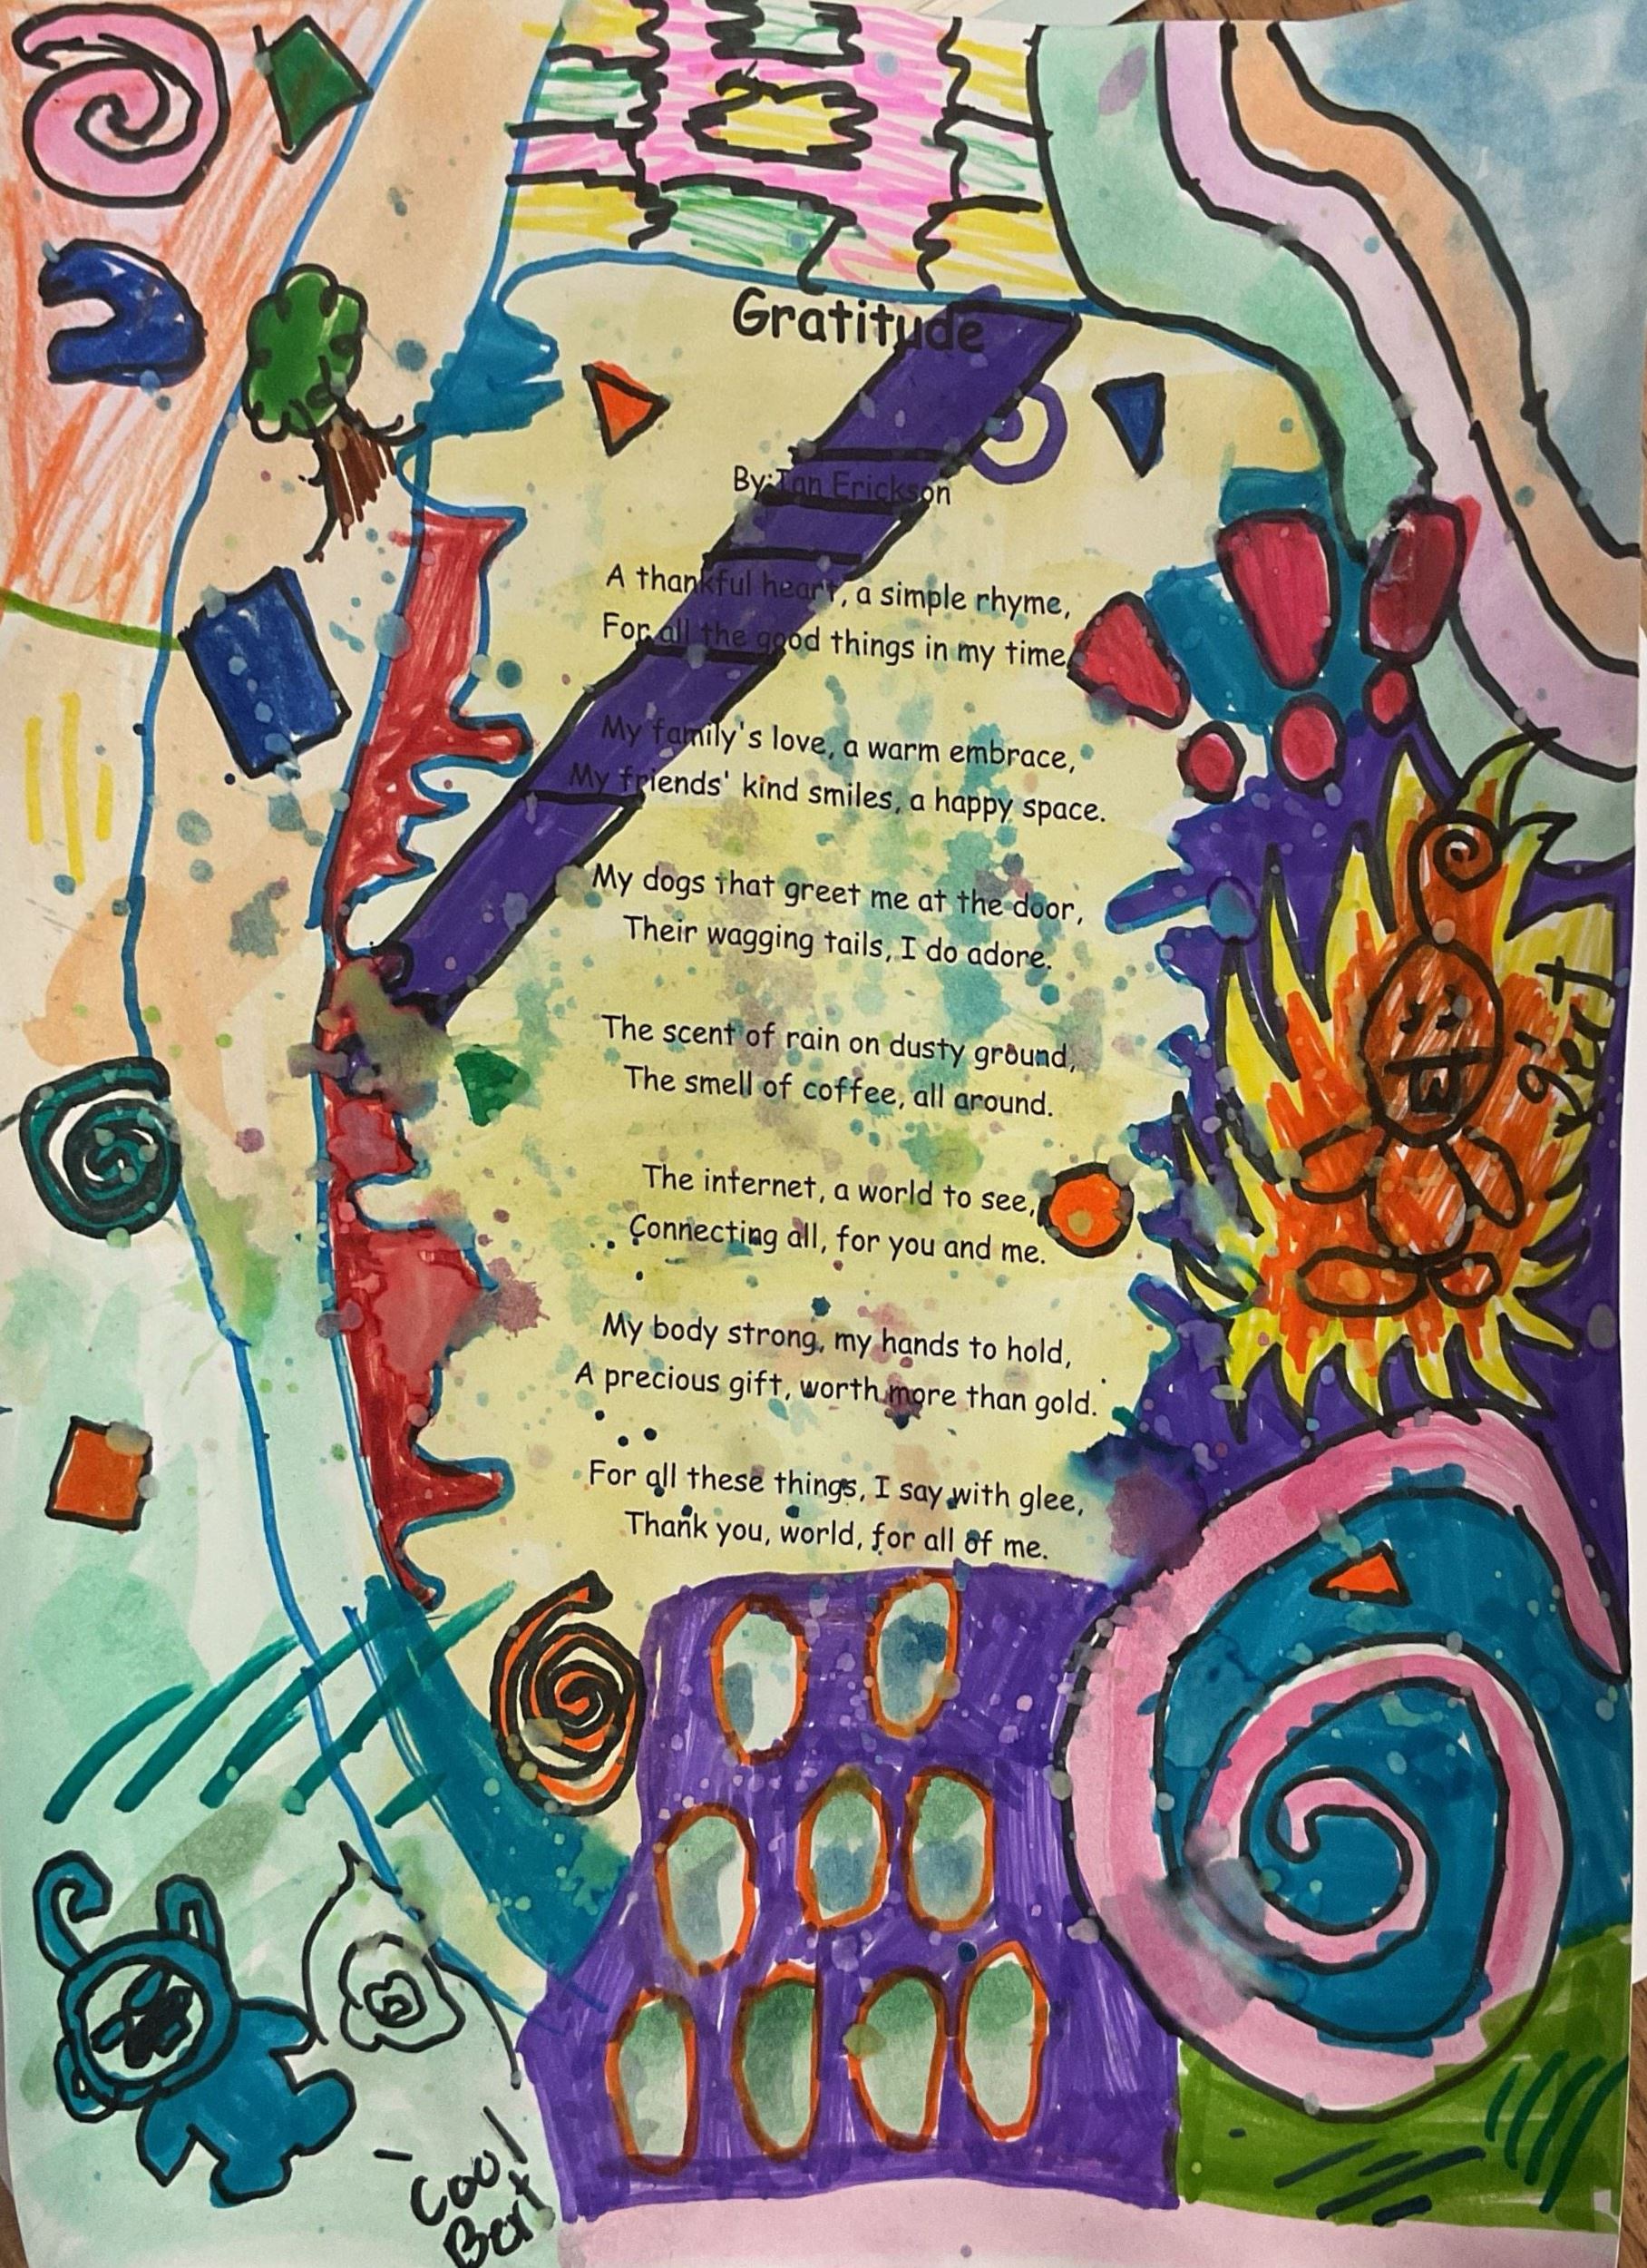 Gratitude
By: Ian Erickson
A thankful heart, a simple rhyme,
For all the good things in my time
My family's love, a warm embrace,
My friends' kind smiles, a happy space.
My dogs that greet me at the door,
Their wagging tails, I do adore.
The scent of rain on dusty ground,
The smell of coffee, all around.
The internet, a world to see,
Connecting all, for you and me.
My body strong, my hands to hold,
A precious gift, worth more than gold.
For all these things, I say with glee,
Thank you, world, for all of me.
Cool